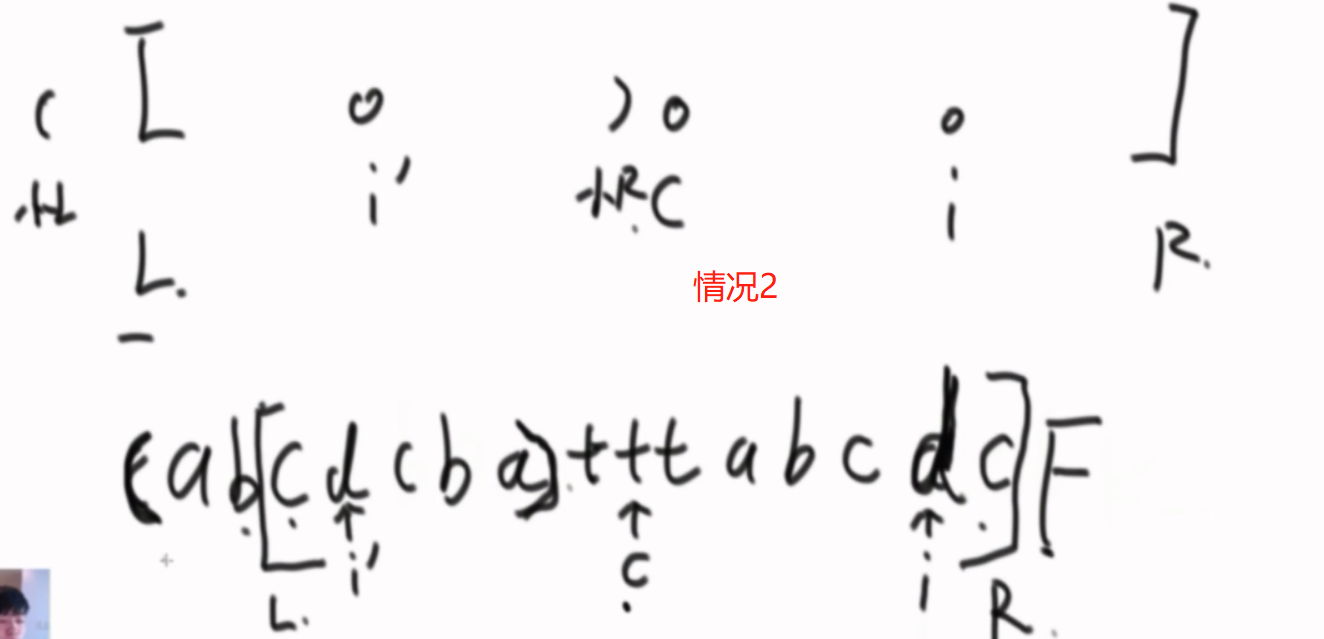 ( [ o ) o o ]
i' C i R.
L.
情况2
( a b [ c d c b a ) t t t a b c d c ] F
i' c i
L. R.